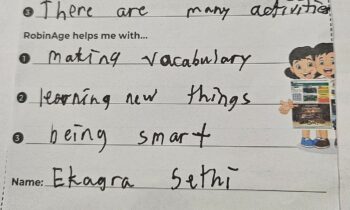 3 There are many activities
RobinAge helps me with...
1 making vocabulary
2 learning new things
3 being smart
Name: Ekagra Sethi